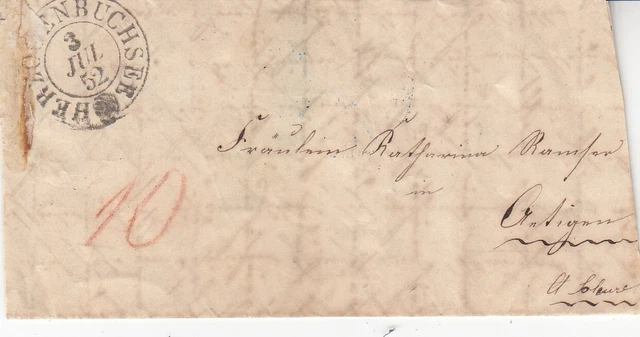 HERZOGENBUCHSEE
3
JUL
52
Fräulein Katharina Ramser
in
Aetigen
Ct Soleure
10